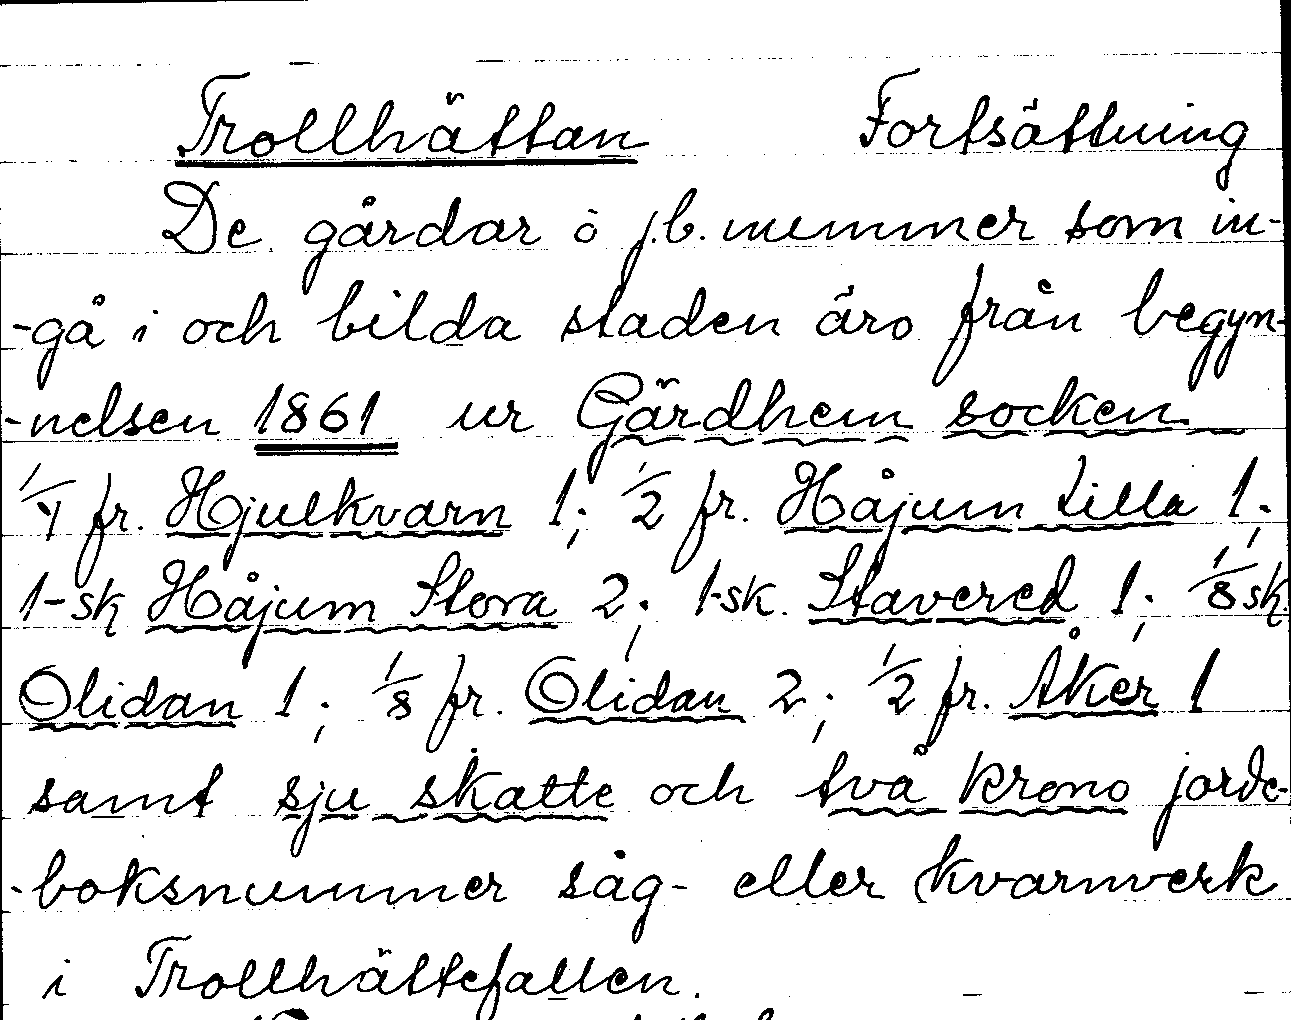 Trollhättan Fortsättning
De gårdar o j.b. nummer som in-
-gå i och bilda staden äro från begyn-
-nelsen 1861 ur Gärdhem socken
1/4 fr. Hjulkvarn 1; 1/2 fr. Håjum Lilla 1;
1-sk Håjum Stora 2; 1-sk. Stavered 1; 1/8 sk.
Olidan 1; 1/8 fr. Olidan 2; 1/2 fr. Åker 1
samt sju skatte och två krono jorde-
-boksnummer såg- eller kvarnverk
i Trollhättefallen.